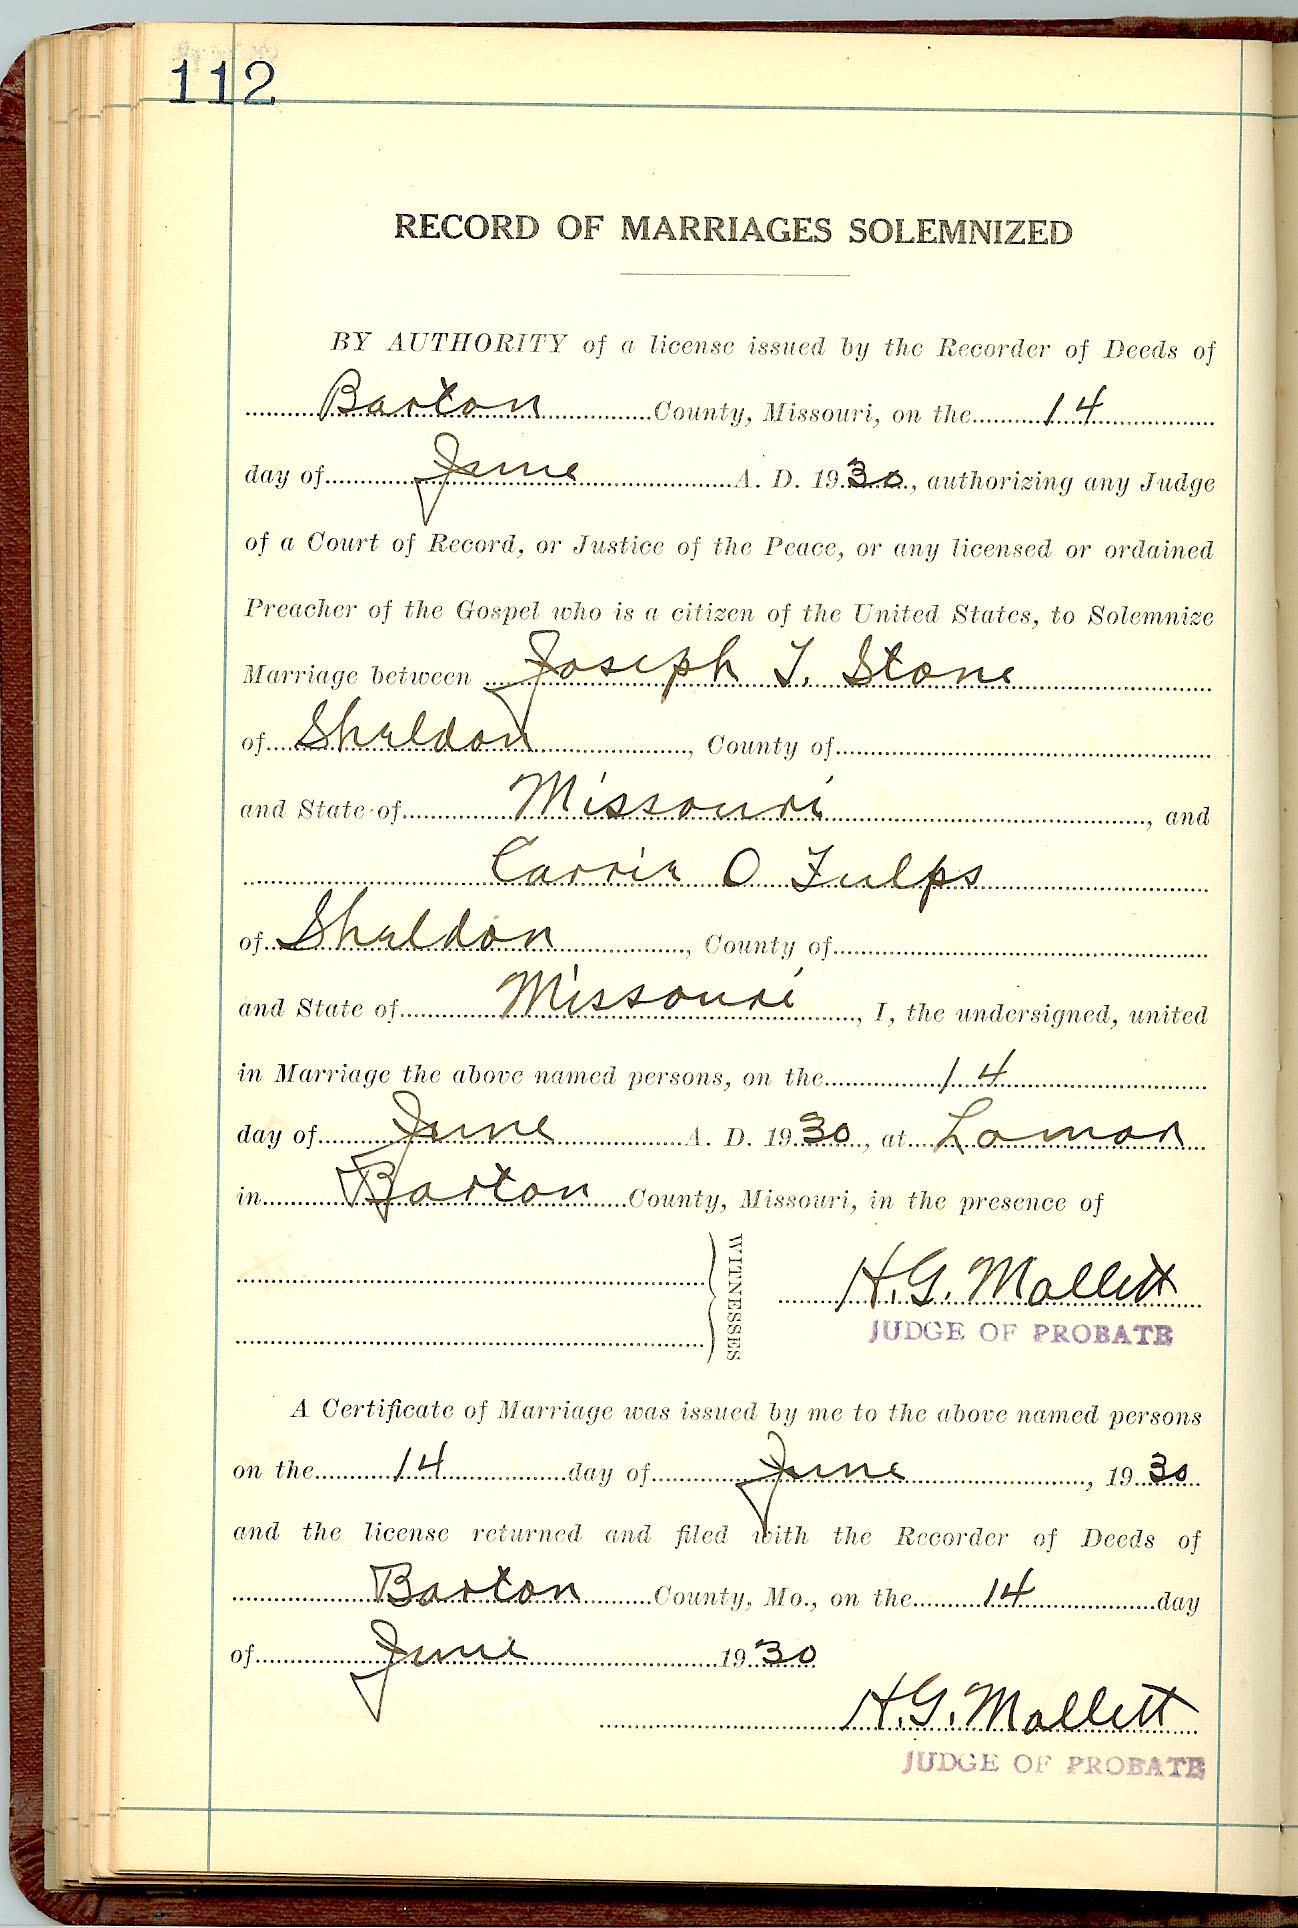 112
RECORD OF MARRIAGES SOLEMNIZED
BY AUTHORITY of a license issued by the Recorder of Deeds of
Barton County, Missouri, on the 14
day of June A. D. 1930, authorizing any Judge
of a Court of Record, or Justice of the Peace, or any licensed or ordained
Preacher of the Gospel who is a citizen of the United States, to Solemnize
Marriage between Joseph T. Stone
of Sheldon, County of
and State of Missouri, and
Carrie O Fulps
of Sheldon, County of
and State of Missouri, I, the undersigned, united
in Marriage the above named persons, on the 14
day of June A. D. 1930, at Lamar
in Barton County, Missouri, in the presence of
WITNESSES
H. G. Mallett
JUDGE OF PROBATE
A Certificate of Marriage was issued by me to the above named persons
on the 14 day of June, 1930
and the license returned and filed with the Recorder of Deeds of
Barton County, Mo., on the 14 day
of June 1930
H. G. Mallett
JUDGE OF PROBATE